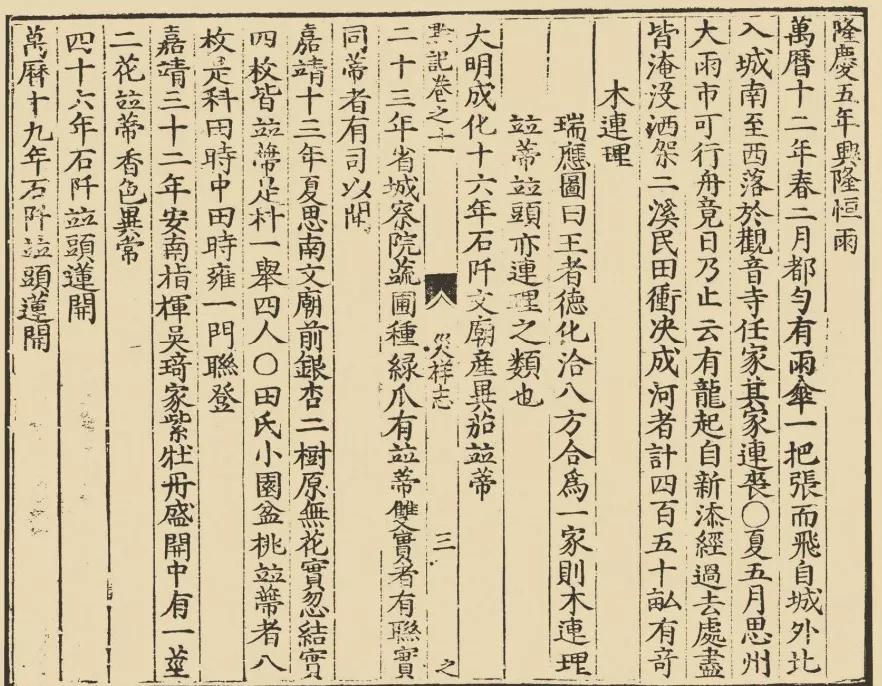 隆慶五年興隆恒雨
萬曆十二年春二月都勻有雨傘一把張而飛自城外北
入城南至西落於觀音寺任家其家連喪〇夏五月思州
大雨市可行舟竟日乃止云有龍起自新添經過去處盡
皆淹没洒架二溪民田衝决成河者計四百五十畝有竒
木連理
瑞應圖曰王者德化洽八方合爲一家則木連理
竝蒂竝頭亦連理之類也
大明成化十六年石阡文廟産異茄竝蒂
黔記卷之十一 災祥志 三 之
二十三年省城察院蔬圃種綠瓜有竝蒂雙實者有聯實
同蒂者有司以聞
嘉靖十三年夏思南文廟前銀杏二樹原無花實忽結實
四枚皆竝蔕是科一舉四人〇田氏小園盆桃竝蔕者八
枚是科田時中田時雍一門聯登
嘉靖三十二年安南指揮吳琦家紫牡丹盛開中有一莖
二花竝蒂香色異常
四十六年石阡竝頭蓮開
萬曆十九年石阡竝頭蓮開